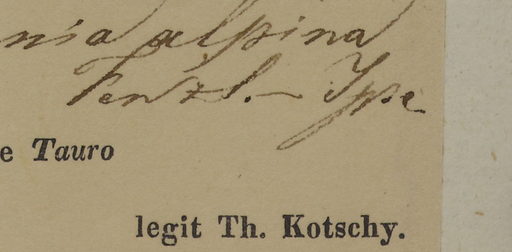 nia alpina
Fenzl. — Type
e Tauro
legit Th. Kotschy.